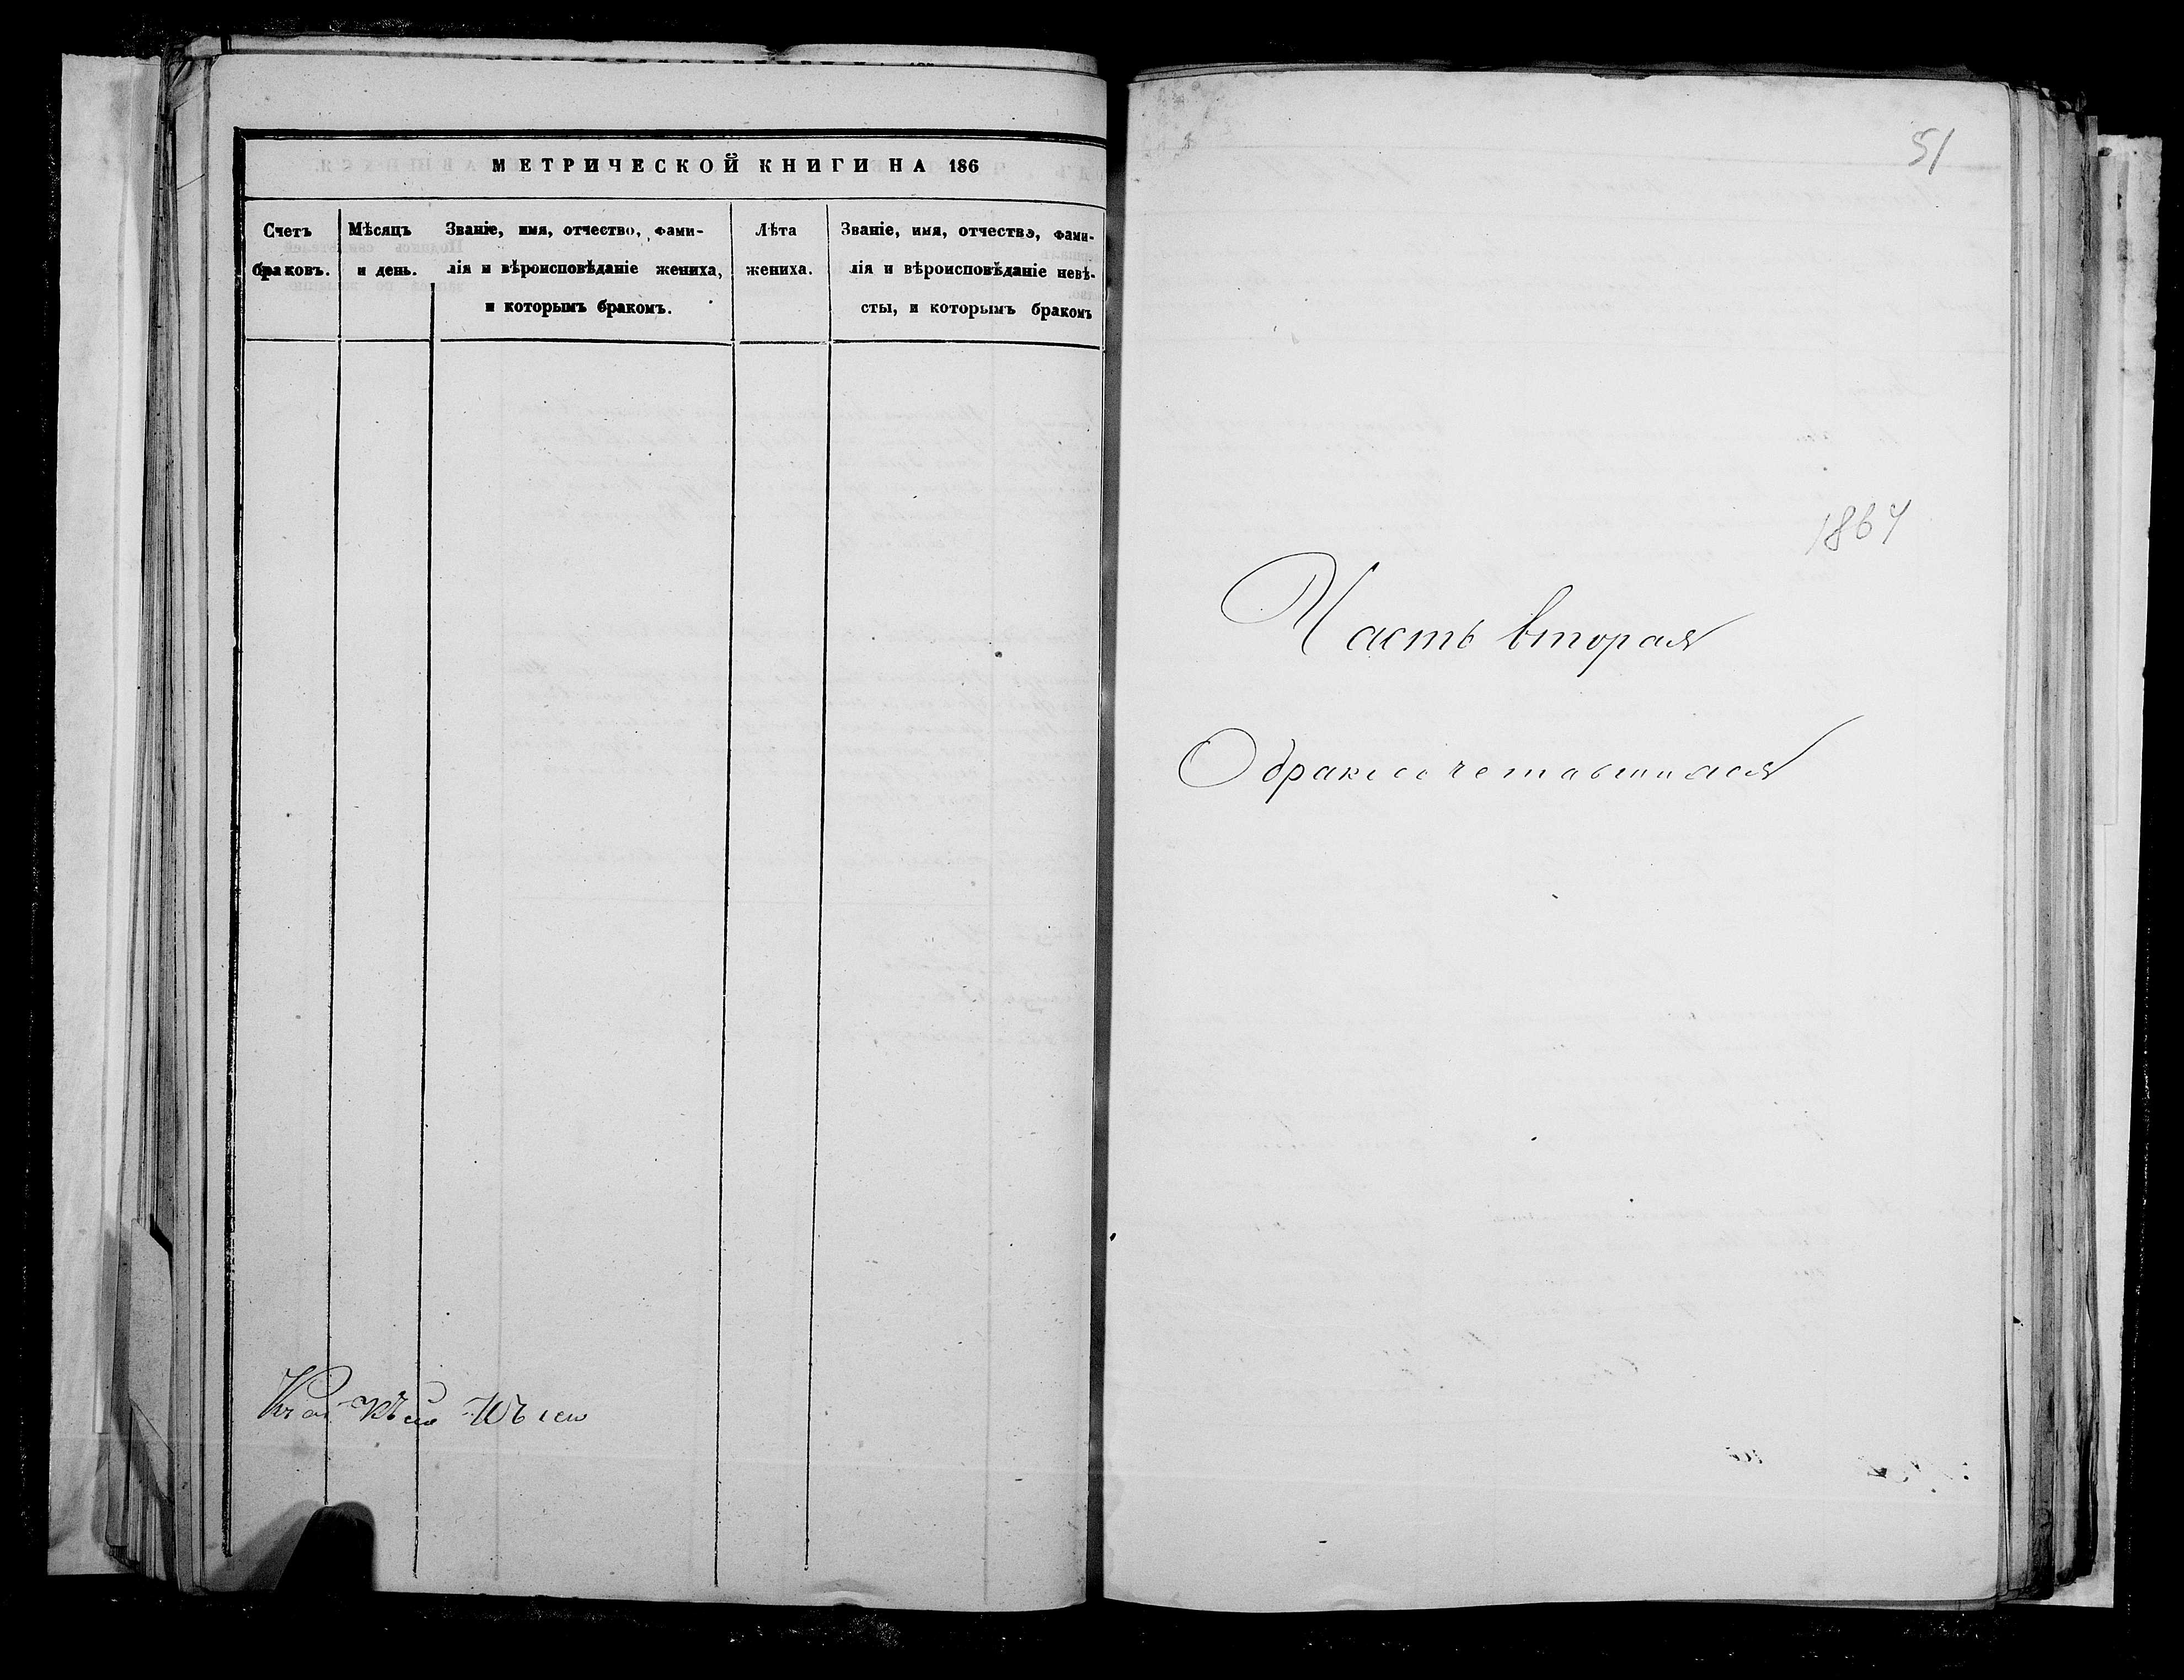 МЕТРИЧЕСКОЙ КНИГИ НА 186
Счетъ браковъ.
Мѣсяцъ и день.
Званіе, имя, отчество, фами-
лія и вѣроисповѣданіе жениха,
и которымъ бракомъ.
Лѣта жениха.
Званіе, имя, отчество, фами-
лія и вѣроисповѣданіе невѣ-
сты, и которымъ бракомъ
51
1864
Часть вторая
О бракосочетавшихся